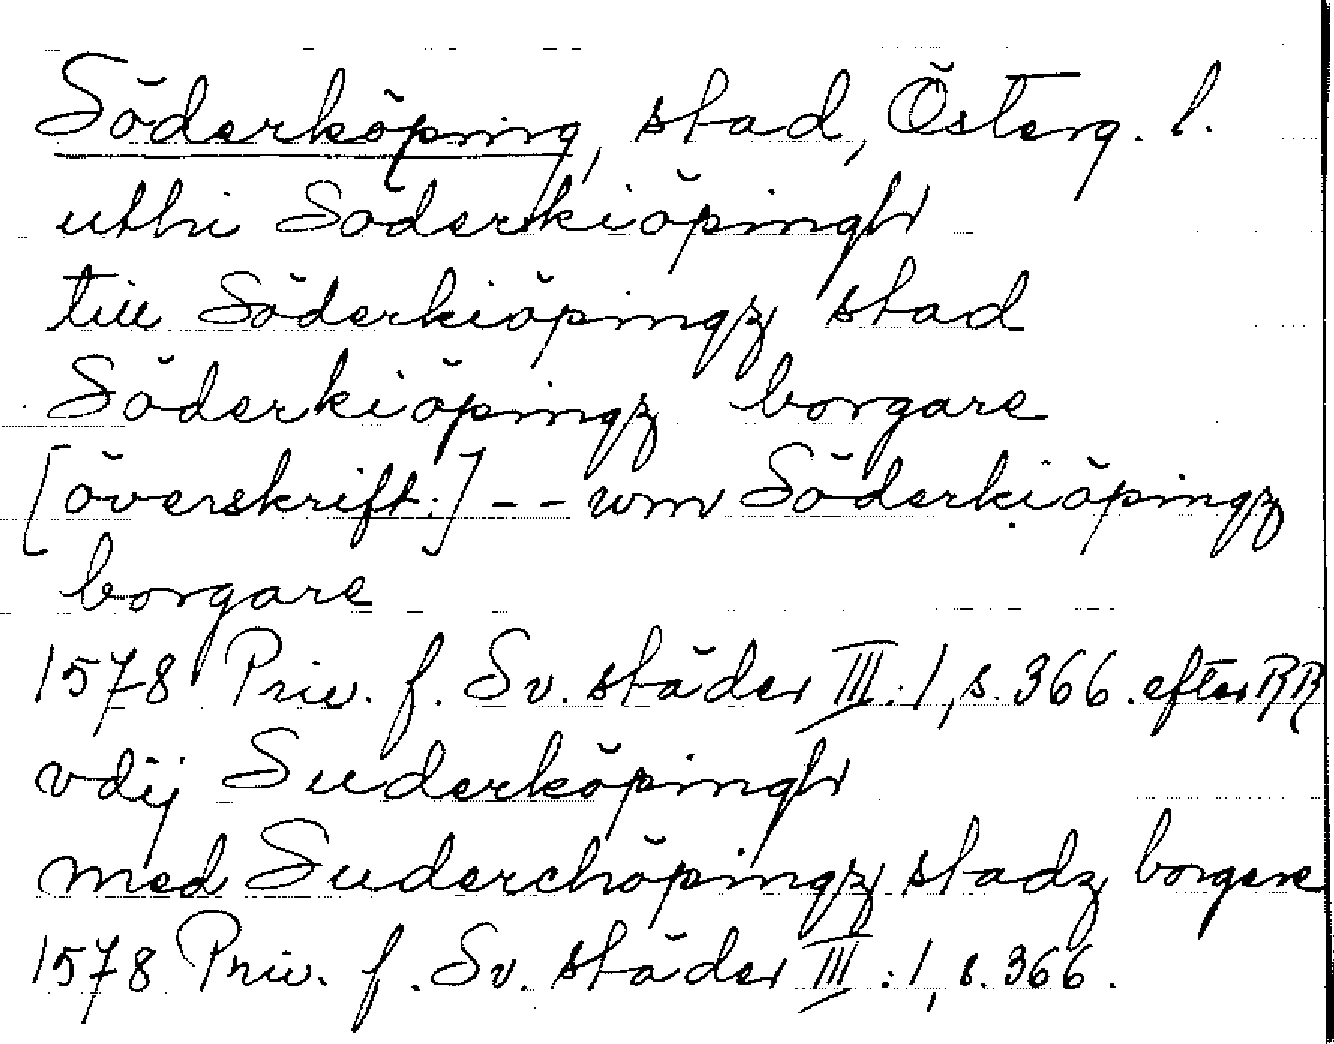 Söderköping, stad, Österg. l.
uthi Söderkiöpingh
till Söderkiöpingz stad
Söderkiöpingz borgare
[överskrift:] - - um Söderkiöpingz
borgare
1578 Priv. f. Sv. städer III:1, s. 366. efter RR
vdij Suderköpingh
med Suderchöpingz stadz borgere
1578 Priv. f. Sv. städer III:1, s. 366.